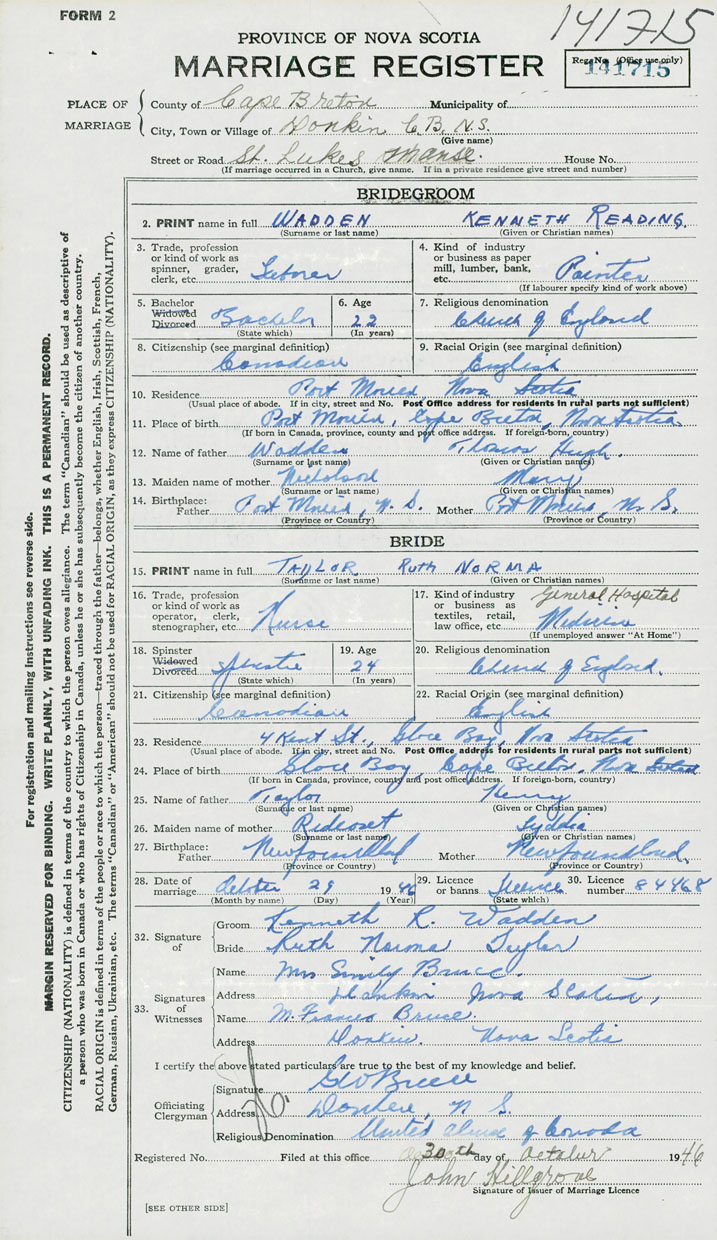 FORM 2
141715
PROVINCE OF NOVA SCOTIA
MARRIAGE REGISTER
Reg. No. (Office use only)
141715
PLACE OF MARRIAGE
County of Cape Breton Municipality of
City, Town or Village of Donkin C.B. N.S.
(Give name)
Street or Road St. Lukes Manse. House No.
(If marriage occurred in a Church, give name. If in a private residence give street and number)
BRIDEGROOM
2. PRINT name in full WADDEN KENNETH READING
(Surname or last name) (Given or Christian names)
3. Trade, profession or kind of work as spinner, grader, clerk, etc. Laborer
4. Kind of industry or business as paper mill, lumber, bank, etc. Painter
(If labourer specify kind of work above)
5. Bachelor Widowed Divorced Bachelor
(State which)
6. Age 22
(In years)
7. Religious denomination Church of England
8. Citizenship (see marginal definition) Canadian
9. Racial Origin (see marginal definition) English
10. Residence Port Morien, Nova Scotia
(Usual place of abode. If in city, street and No. Post Office address for residents in rural parts not sufficient)
11. Place of birth Port Morien, Cape Breton, Nova Scotia
(If born in Canada, province, county and post office address. If foreign-born, country)
12. Name of father Wadden Thomas Hugh.
(Surname or last name) (Given or Christian names)
13. Maiden name of mother Nicholson Mary
(Surname or last name) (Given or Christian names)
14. Birthplace: Father Port Morien, N.S. Mother Port Morien, N.S.
(Province or Country) (Province or Country)
BRIDE
15. PRINT name in full TAYLOR RUTH NORMA
(Surname or last name) (Given or Christian names)
16. Trade, profession or kind of work as operator, clerk, stenographer, etc. Nurse
17. Kind of industry or business as textiles, retail, law office, etc. General Hospital Medicine
(If unemployed answer "At Home")
18. Spinster Widowed Divorced
(State which)
19. Age 24
(In years)
20. Religious denomination Church of England.
21. Citizenship (see marginal definition) Canadian
22. Racial Origin (see marginal definition) English
23. Residence 4 Kent St., Glace Bay, Nova Scotia
(Usual place of abode. If in city, street and No. Post Office address for residents in rural parts not sufficient)
24. Place of birth Glace Bay, Cape Breton, Nova Scotia
(If born in Canada, province, county and post office address. If foreign-born, country)
25. Name of father Taylor Henry
(Surname or last name) (Given or Christian names)
26. Maiden name of mother Lyddia
(Surname or last name) (Given or Christian names)
27. Birthplace: Father Newfoundland Mother Newfoundland.
(Province or Country) (Province or Country)
28. Date of marriage October 29 1946
(Month by name) (Day) (Year)
29. Licence or banns Licence
(State which)
30. Licence number 84468
32. Signature of
Groom Kenneth R. Wadden
Bride Ruth Norma Taylor
33. Signatures of Witnesses
Name Mrs Emily Bruce.
Address Donkin Nova Scotia,
Name M. Frances Bruce.
Address Donkin. Nova Scotia
I certify the above stated particulars are true to the best of my knowledge and belief.
Officiating Clergyman
Signature Bruce
Address Donkin, N S.
Religious Denomination United Church of Canada
Registered No. Filed at this office 30th day of October 1946
John Hillgrove
Signature of Issuer of Marriage Licence
[SEE OTHER SIDE]
For registration and mailing instructions see reverse side.
MARGIN RESERVED FOR BINDING. WRITE PLAINLY, WITH UNFADING INK. THIS IS A PERMANENT RECORD.
CITIZENSHIP (NATIONALITY) is defined in terms of the country to which the person owes allegiance. The term "Canadian" should be used as descriptive of
a person who was born in Canada or who has rights of Citizenship in Canada, unless he or she has subsequently become the citizen of another country.
RACIAL ORIGIN is defined in terms of the people or race to which the person—traced through the father—belongs, whether English, Irish, Scottish, French,
German, Russian, Ukrainian, etc. The terms "Canadian" or "American" should not be used for RACIAL ORIGIN, as they express CITIZENSHIP (NATIONALITY).